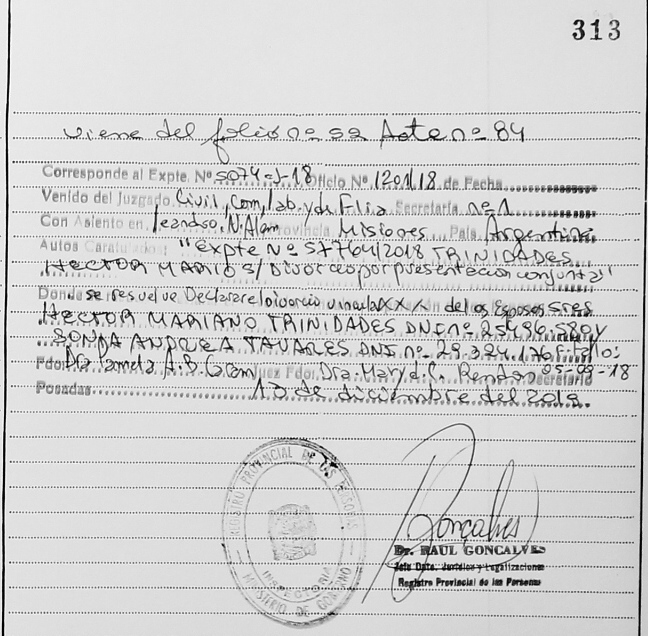 313
viene del folio nº 52 Acta nº 84
Corresponde al Expte. Nº 5074-J-18 Oficio Nº 1201/18 de Fecha
Venido del Juzgado Civil, Com, lab. y de Flia Secretaría nº 1
Con Asiento en leandro. N. Alem Provincia Misiones País Argentina
Autos Caratulados "expte Nº 57764/2018 TRINIDADES
HECTOR MARIO s/ Divorcio por presentación conjunta"
Donde se resuelve Declarar el divorcio vincular XXX de los Esposos sres
HECTOR MARIANO TRINIDADES DNI nº 25.496.580 y
SONIA ANDREA TAVARES DNI nº 29.324.176. Fallo:
Fdo. Dra Pamela A.B. Juez Fdo. Dra. Mary d. C. 05-09-18 Secretario
Posadas 13 de diciembre del 2018.
REGISTRO PROVINCIAL DE LAS PERSONAS
INSPECTORIA
MINISTERIO DE GOBIERNO
Goncalves
Dr. RAUL GONCALVES
Jefe Dpto. Jurídico y Legalizaciones
Registro Provincial de las Personas